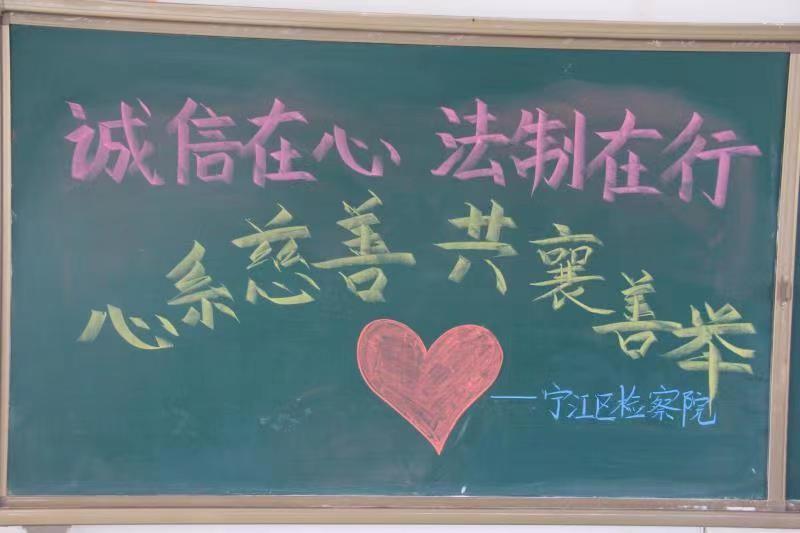 诚信在心 法制在行
心系慈善 共襄善举
——宁江区检察院